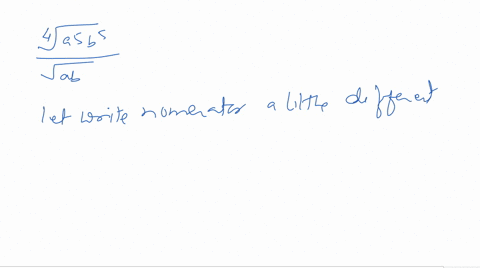 ⁴√a⁵b⁵
√ab
let write nomerator a little different